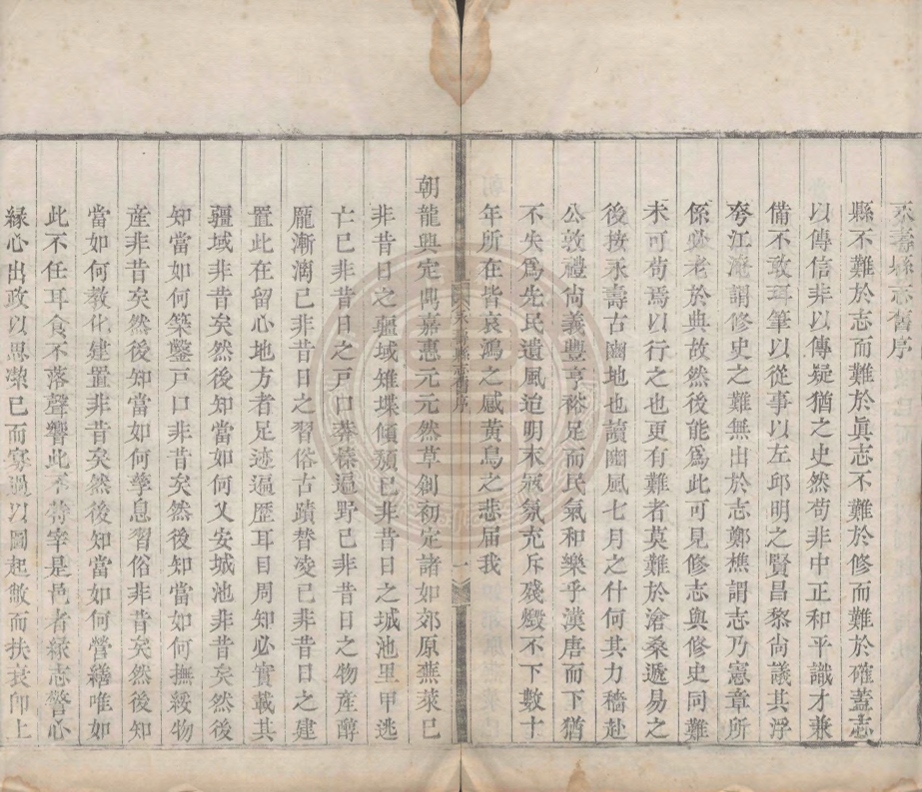 永壽縣志舊序
縣不難於志而難於眞志不難於修而難於確蓋志
以傳信非以傳疑猶之史然苟非中正和平識才兼
備不敢珥筆以從事以左邱明之賢昌黎尙議其浮
夸江淹謂修史之難無出於志鄭樵謂志乃憲章所
係非老於典故然後能爲此可見修志與修史同難
未可苟焉以行之也更有難者莫難於滄桑遞易之
後按永壽古豳地也讀豳風七月之什何其力穡赴
公敦禮尙義豐亨裕足而民氣和樂乎漢唐而下猶
不失爲先民遺風迨明末寇氛充斥殘燬不下數十
年所在皆哀鴻之感黃鳥之悲届我
永壽縣志舊序
一
朝龍興定鼎嘉惠元元然草創初定諸如郊原蕪萊已
非昔日之疆域雉堞傾頽已非昔日之城池里甲逃
亡已非昔日之戸口蓁榛遍野已非昔日之物產醇
厖漸漓已非昔日之習俗古蹟替凌已非昔日之建
置此在留心地方者足迹遍歴耳目周知必實載其
疆域非昔矣然後知當如何乂安城池非昔矣然後
知當如何築鑿戸口非昔矣然後知當如何撫綏物
產非昔矣然後知當如何孳息習俗非昔矣然後知
當如何敎化建置非昔矣然後知當如何營繕唯如
此不任耳食不落聲響此不特宰是邑者緣志警心
緣心出政以思潔已而寡過以圖起敝而扶衰卽上